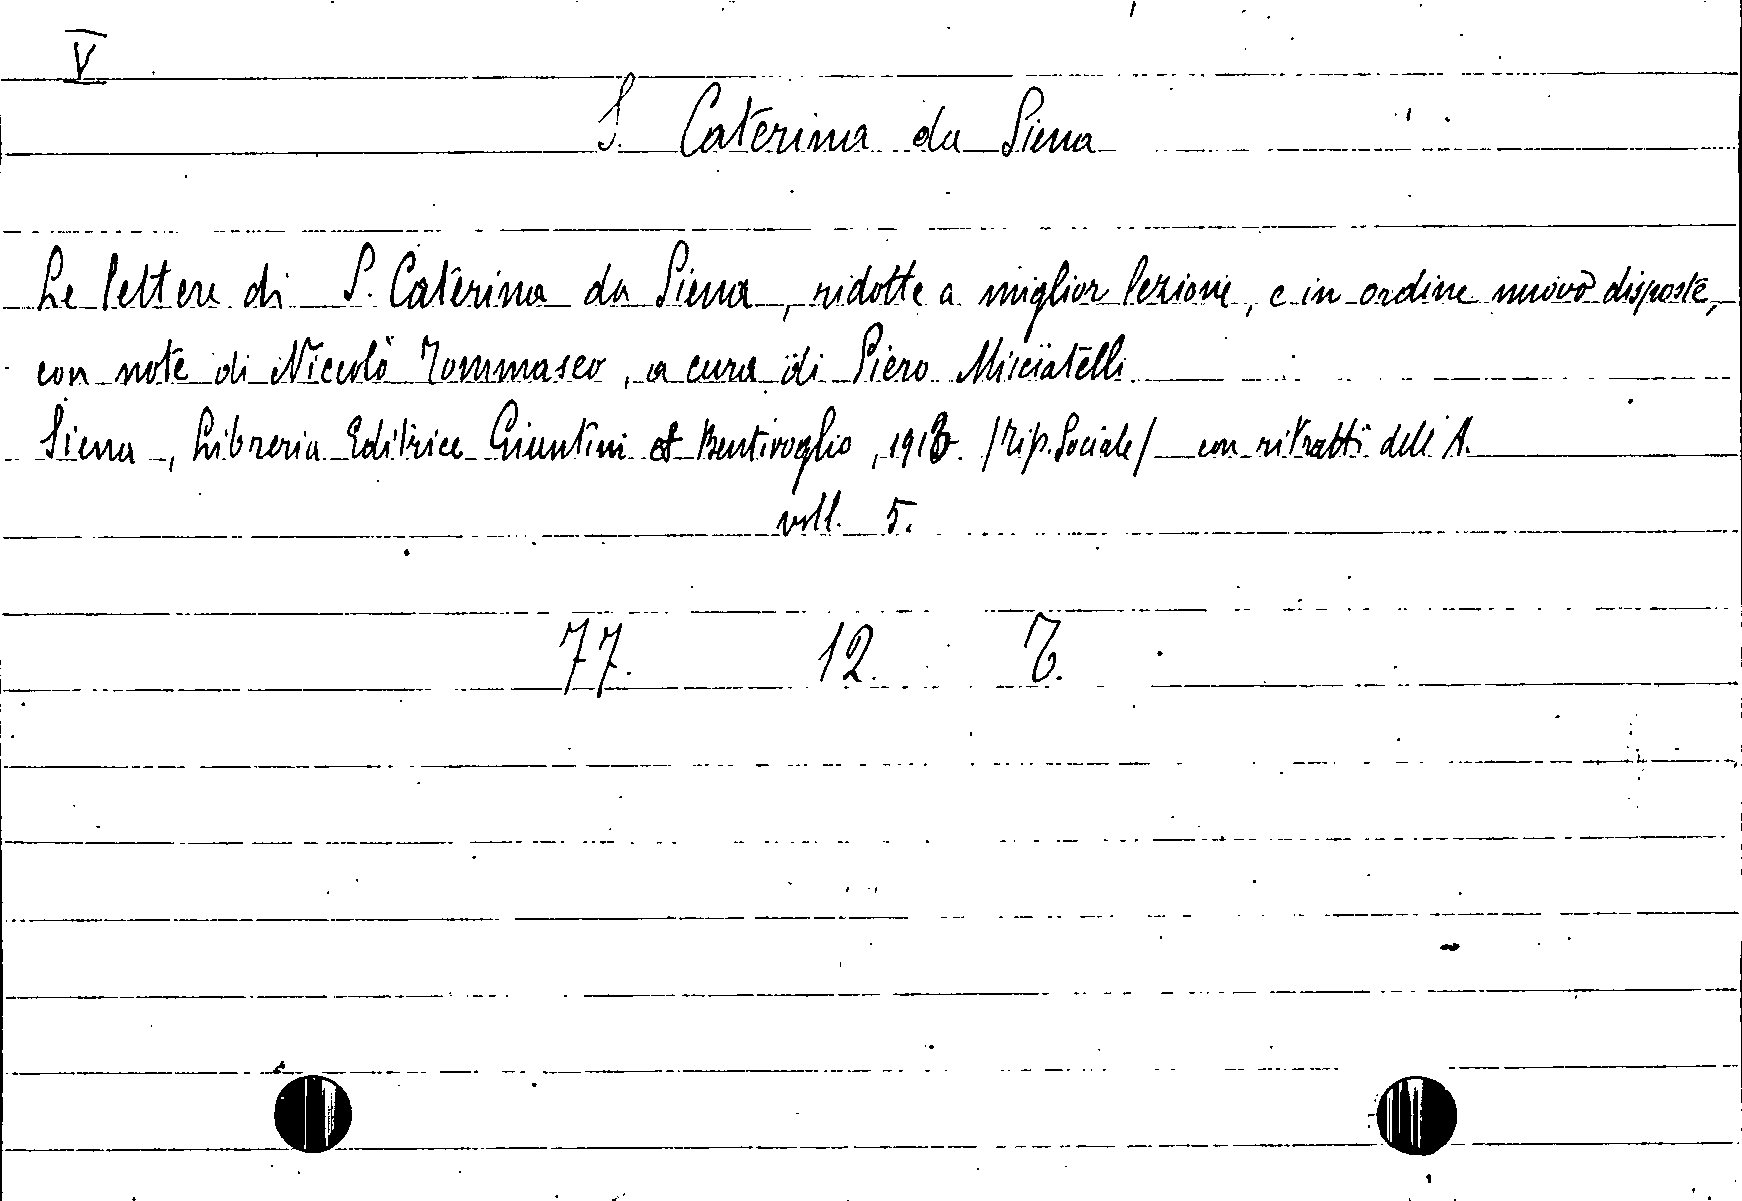 V
S. Caterina da Siena
Le lettere di S. Caterina da Siena, ridotte a miglior lezione, e in ordine nuovo disposte,
con note di Niccolò Tommaseo, a cura di Piero Misciatelli
Siena, Libreria Editrice Giuntini & Bentivoglio, /Tip. Sociale/ con ritratti dell'A.
voll. 5.
77. 12.